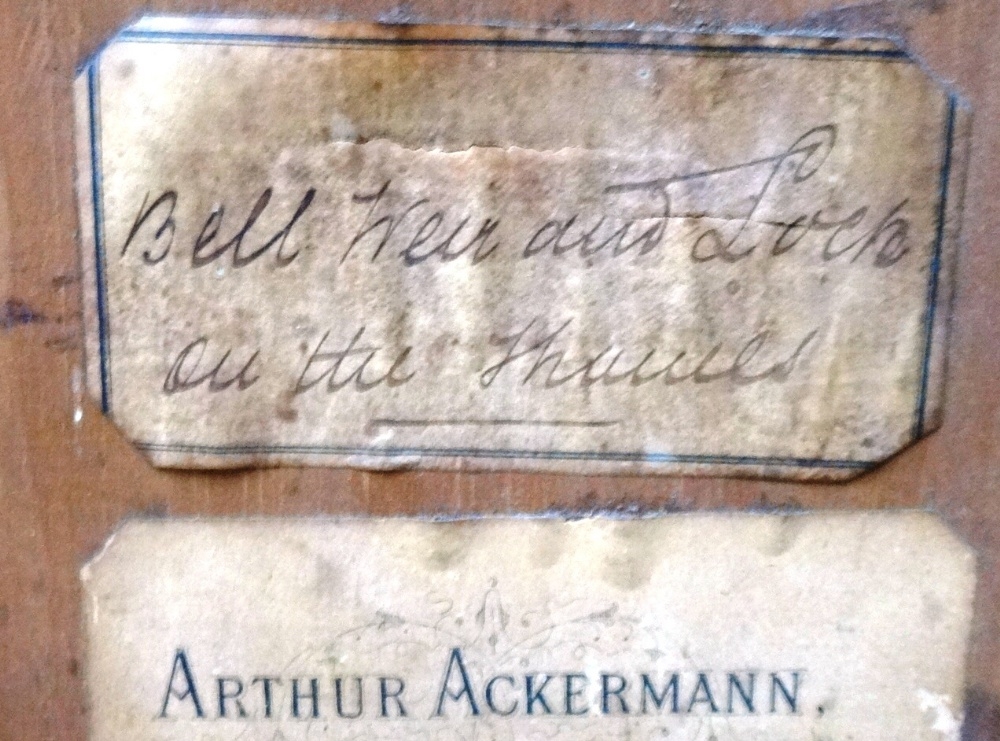 Bell Weir and Lock
on the Thames
ARTHUR ACKERMANN,